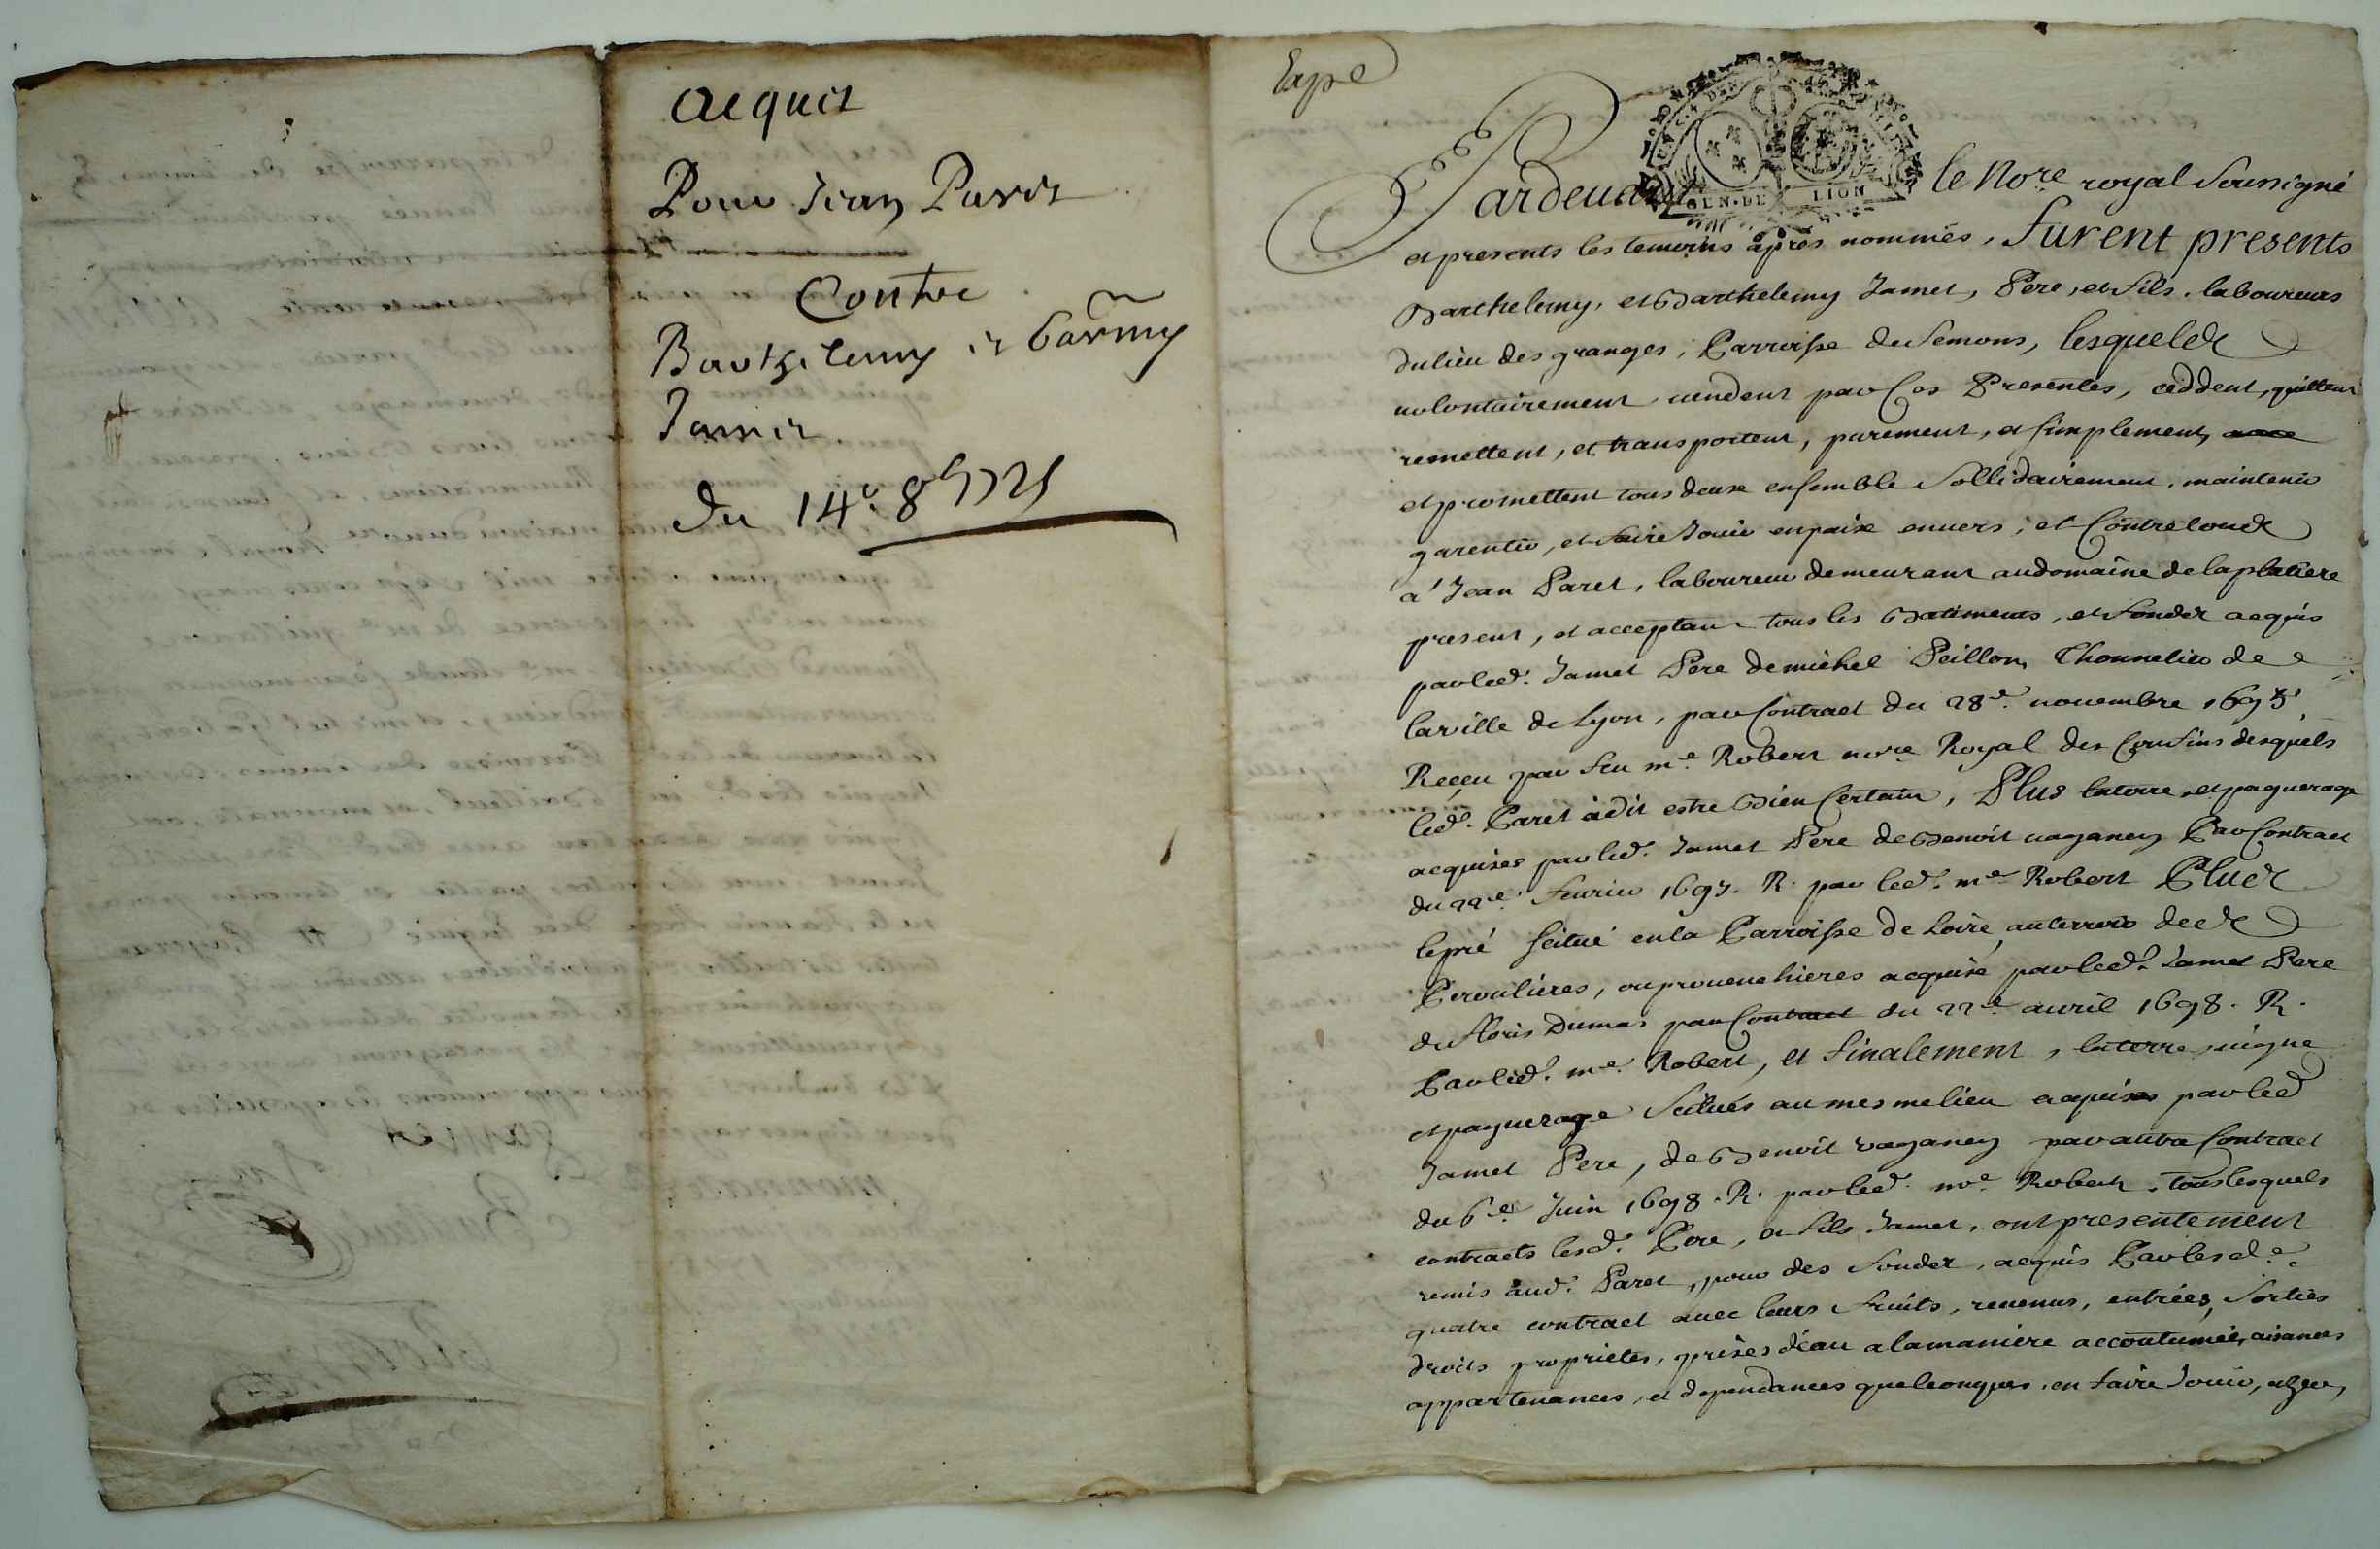 acquis
Pour Jean Paret
Contre
Barthelemy et Barmy
Jamet
du 14e 8b
Expé
Pardevant le Nore royal Soussigné
GEN. DE LION
et presents les temoins apres nommés, furent presents
Barthelemy, et Barthelemy Jamet, Pere, et fils, laboureurs
du lieu des granges, Parroisse de Semons, lesquels
volontairement vendent par Ces Presentes, ceddent, quittent
remettent, et transportent, purement, et simplement,
et promettent tous deux ensemble Sollidairement, maintenir
garentir, et faire Jouir en paix envers, et Contre tous
a Jean Paret, laboureur demeurant au domaine de la platiere
present, et acceptant tous les Batiments, et fonds acquis
par led. Jamet Pere de michel Peillon, Thonnelier de
la ville de Lyon, par Contract du 28e. novembre 1695,
Reçeu par feu me. Robert nore Royal des Confins desquels
led. Paret à dit estre Bien Certain, Plus la terre, et paquerage
acquises par led. Jamet Pere de Benoit vaganey Par Contract
du 22e. fevrier 1697. R. par led. me Robert Plus
le pré scitué en la Parroisse de Loire, au terroir des
Peroulieres, ou prouenchieres acquise par led. Jamet Pere
de floris Dumas par Contract du 22e. avril 1698. R.
Par led. me. Robert, et finalement, la terre, vigne
et paquerage Scitués au mesme lieu acquises par led
Jamet Pere, de Benoit vaganey par autre Contract
du 6e. Juin 1698. R. par led. me. Robert, tous lesquels
contracts lesd. Pere, et fils Jamet, ont presentement
remis aud. Paret, pour des fonds, acquis Par lesd.
quatre contract avec leurs fruits, revenus, entrées, Sorties
droits proprietes, prises d'eau a la maniere accoutumée, aisances
appartenances, et dependances quelconques, en faire Jouir, uzer,